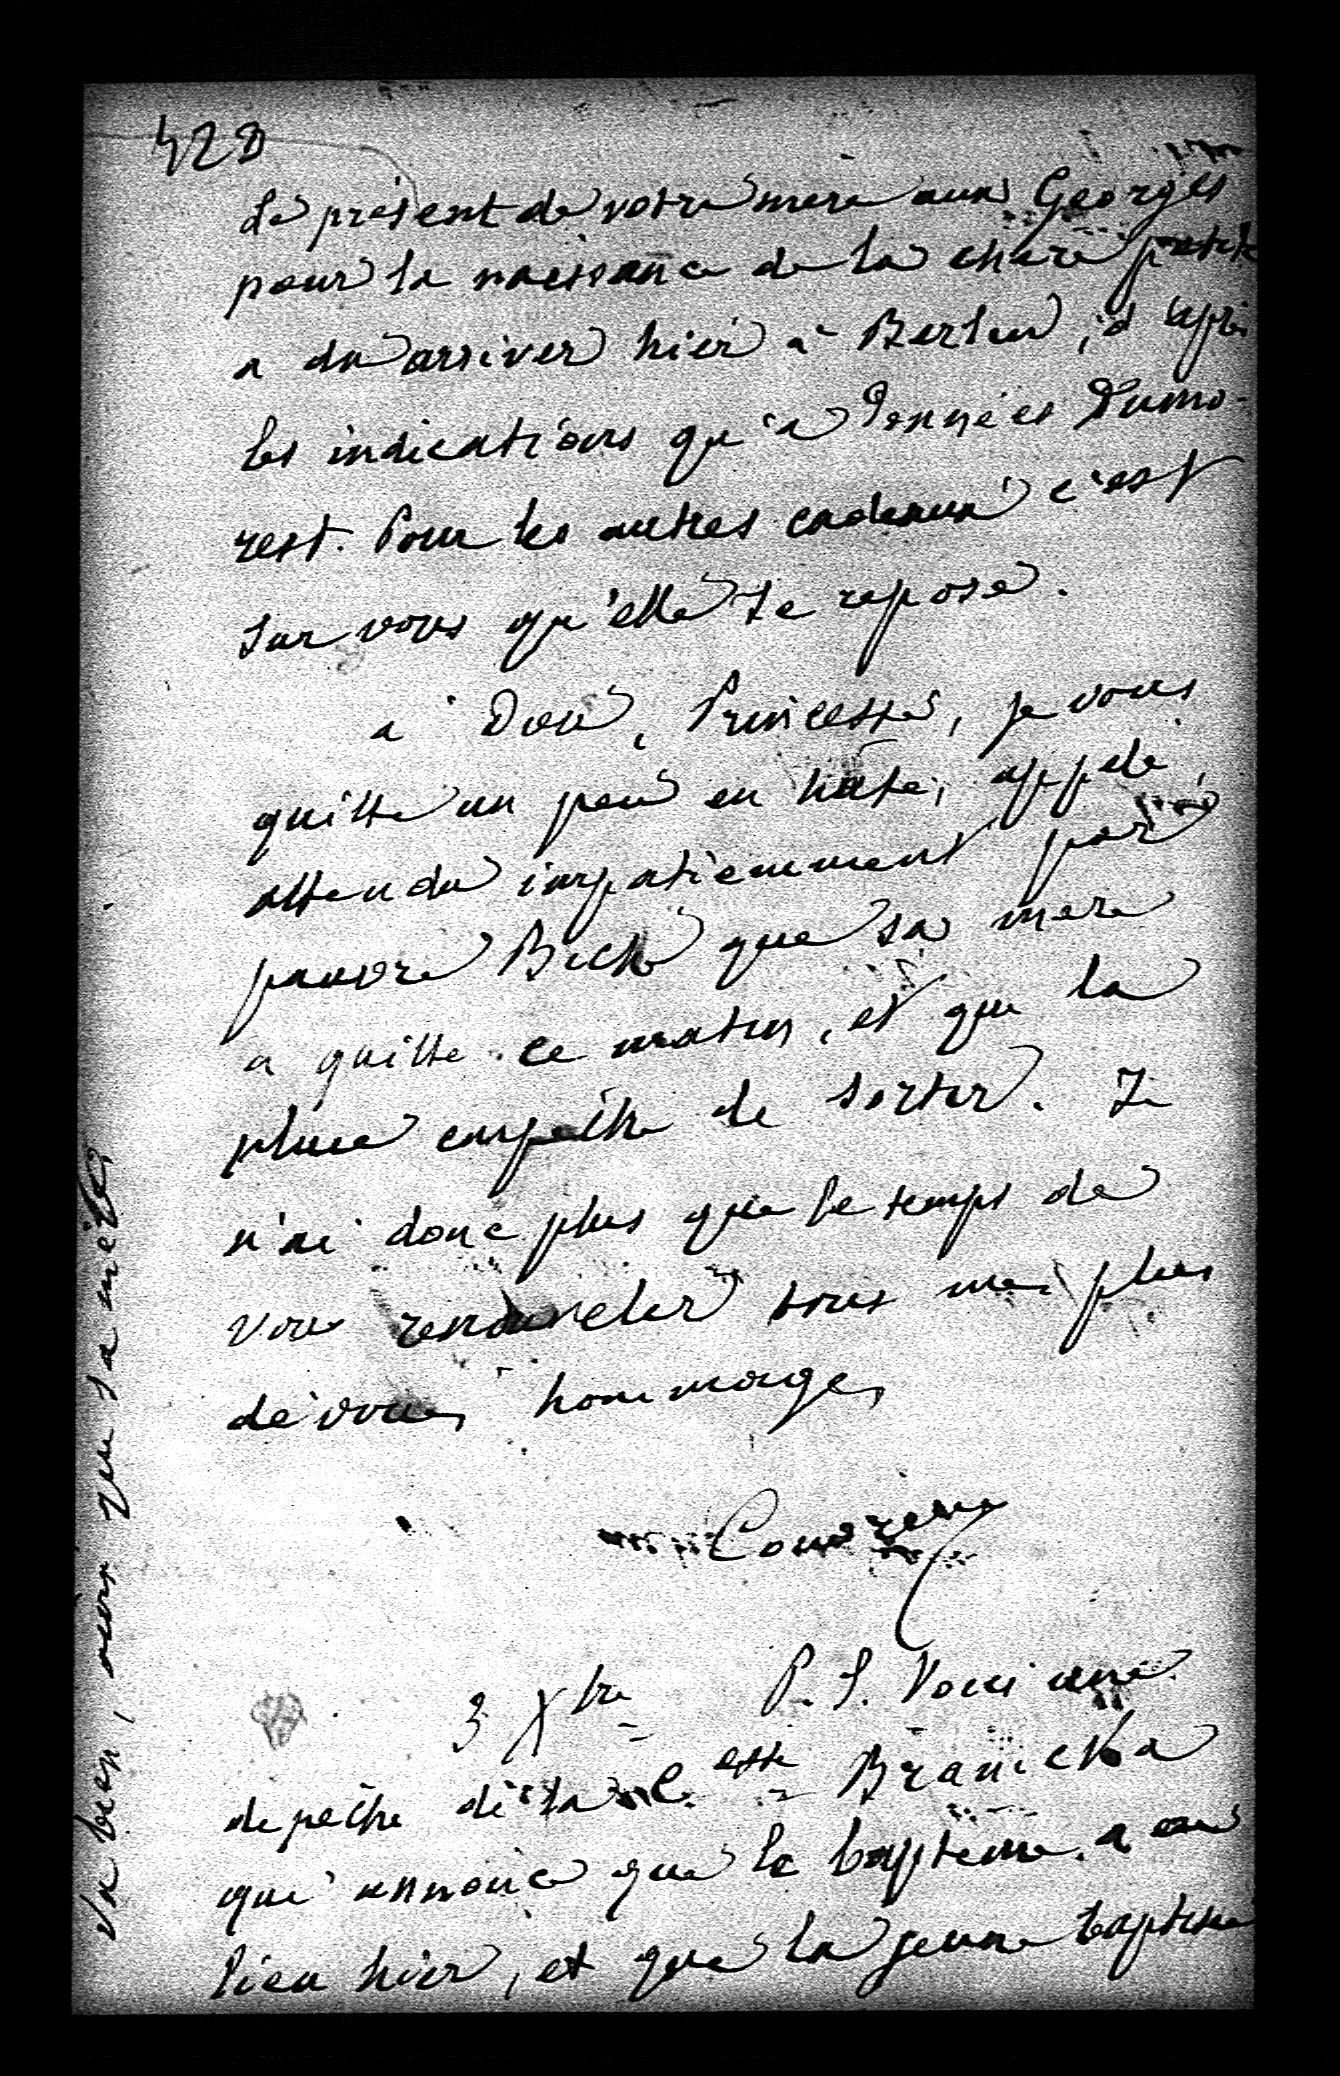 428
Le présent de votre mère aux Georges
pour la naissance de la chère petite
a du arriver hier à Berlin, d'après
les indications qu'a données Dumo-
rest. Pour les autres cadeaux c'est
sur vous qu'elle se repose.
a Dieu, Princesse, je vous
quitte un peu en hâte, appelé,
attendu impatiemment par
pauvre Biche que sa mère
a quitté ce matin, et que la
pluie empêche de sortir. Je
n'ai donc plus que le temps de
vous renouveler tous mes plus
dévoués hommages
3 Xbre P. S. Voici une
depêche de la Ctesse Branicka
qui annonce que le baptême a eu
lieu hier, et que la jeune baptisée
va bien, ainsi que sa mère